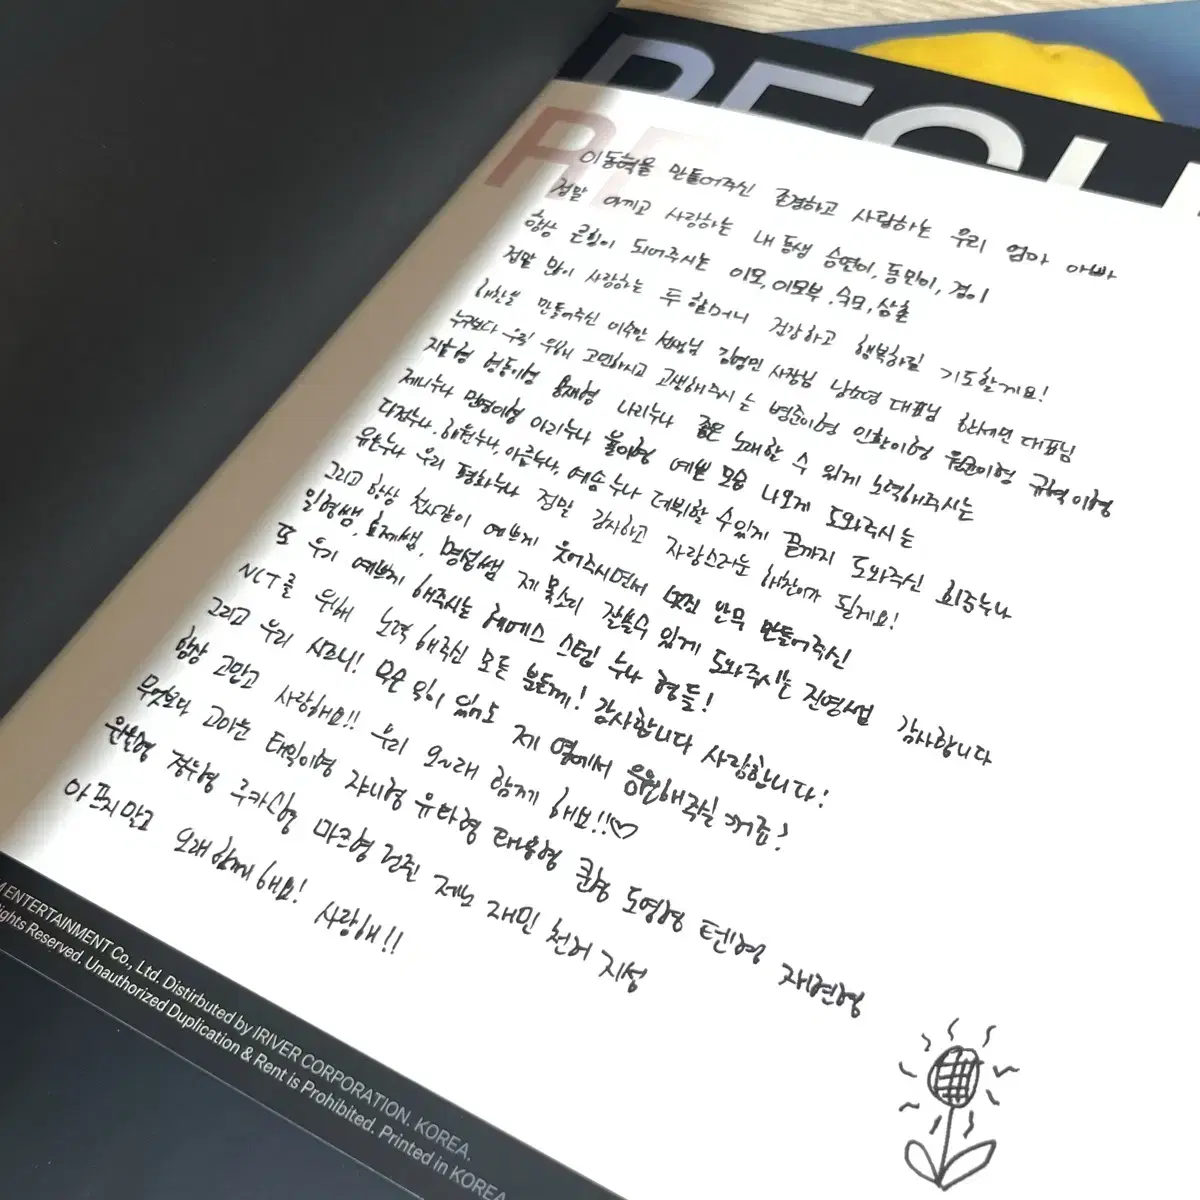 REGUL
RE
이동혁을 만들어주신 존경하고 사랑하는 우리 엄마 아빠
정말 아끼고 사랑하는 내 동생 승연이, 동민이, 경이
항상 큰힘이 되어주시는 이모, 이모부, 숙모, 삼촌
정말 많이 사랑하는 두 할머니 건강하고 행복하길 기도할게요!
해찬을 만들어주신 이수만 선생님 김영민 사장님 남소영 대표님 한세민 대표님
누구보다 우릴 위해 고민하시고 고생해주시는 병준이형 인학이형 규혁이형
지호형 영동이형 용재형 나리누나 좋은 노래할 수 있게 노력해주시는
제니누나 민영이형 아리누나 예쁜 모습 나오게 도와주시는
다정누나, 해원누나, 아름누나, 예솜누나 데뷔할 수 있게 끝까지 도와주신 희주누나
유은누나 우리 평화누나 정말 감사하고 자랑스러운 해찬이가 될게요!
그리고 항상 천사같이 예쁘게 웃어주시면서 멋진 안무 만들어주신
일형쌤, 효제쌤, 명섭쌤 제 목소리 잘쓸수 있게 도와주시는 진영쌤 감사합니다
또 우리 예쁘게 해주시는 헤메스 스텝 누나 형들!
NCT를 위해 노력해주신 모든 분들께! 감사합니다 사랑합니다!
그리고 우리 시즈니! 무슨 일이 있어도 제 옆에서 응원해주실 거죠?
항상 고맙고 사랑해요!! 우리 오~래 함께 해요!!♡
무엇보다 고마운 태일이형 쟈니형 유타형 태용형 쿤형 도영형 텐형 재현형
윈윈형 정우형 루카스형 마크형 런쥔 제노 재민 천러 지성
아프지말고 오래 함께해요! 사랑해!!
M ENTERTAINMENT Co., Ltd. Distirbuted by IRIVER CORPORATION. KOREA.
ights Reserved. Unauthorized Duplication & Rent is Prohibited. Printed in KOREA